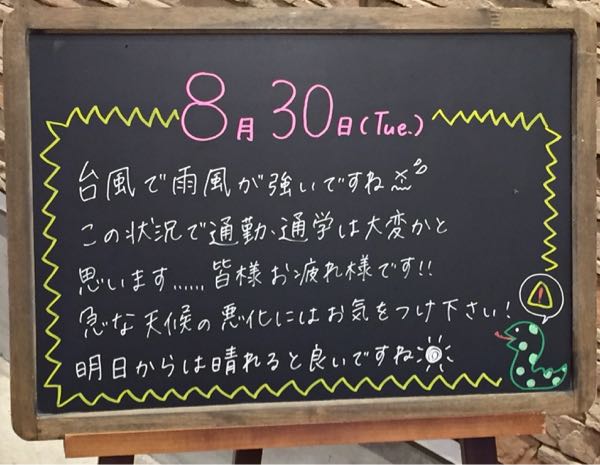 8月30日(Tue.)
台風で雨風が強いですね
この状況で通勤、通学は大変かと
思います……皆様お疲れ様です!!
急な天候の悪化にはお気をつけ下さい!
明日からは晴れると良いですね
!